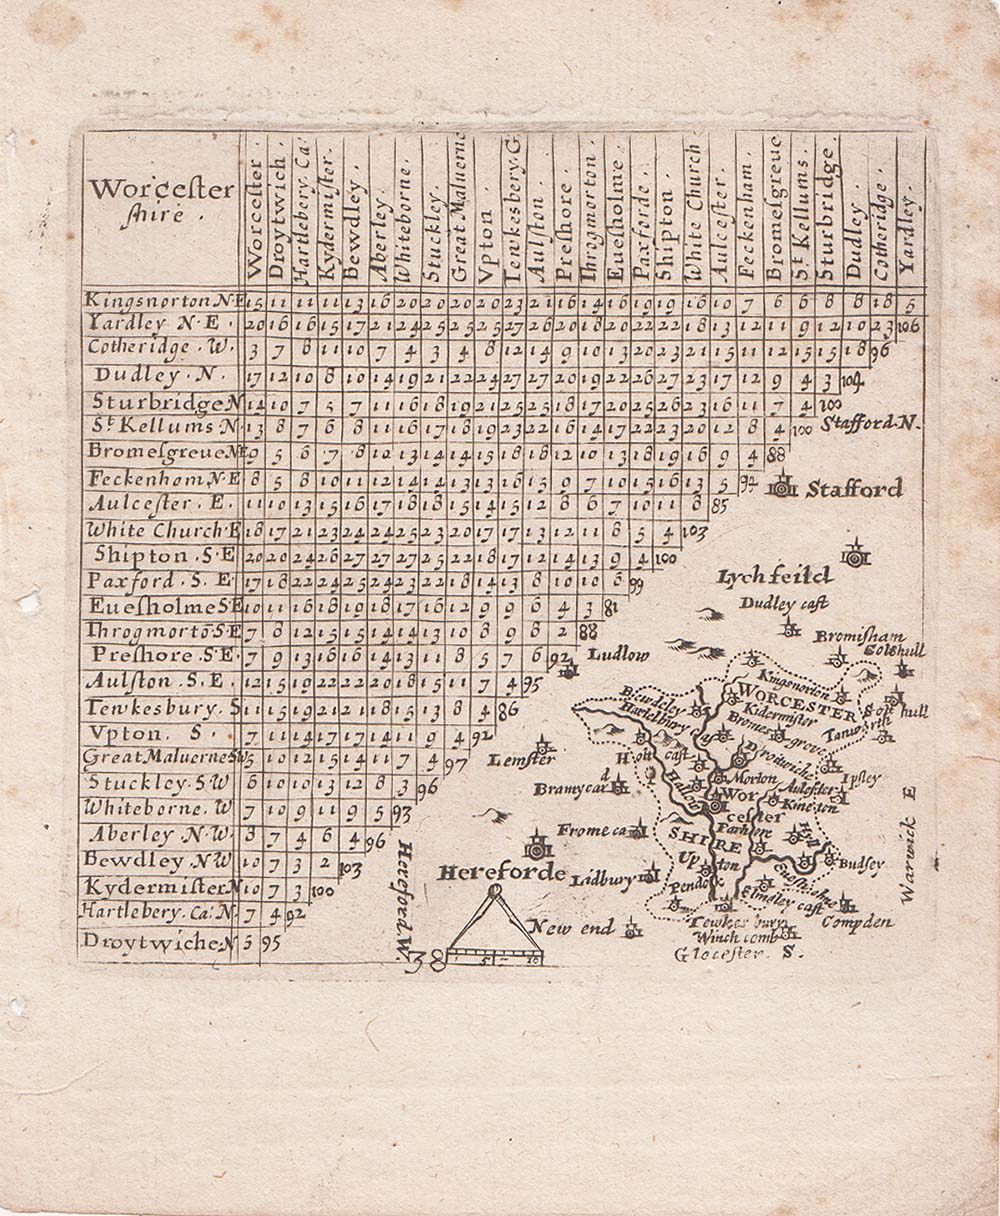 Worcester
shire .
Worcester .
Droytwich .
Hartlebery. Ca
Kydermister .
Bewdley .
Aberley .
Whiteborne .
Stuckley .
Great Maluerne
Vpton .
Tewkesbery. G
Aulston .
Preshore .
Throgmorton .
Euesholme .
Paxforde .
Shipton .
White Church .
Aulcester .
Feckenham .
Bromesgreue
St Kellums .
Sturbridge .
Dudley .
Cotheridge .
Yardley .
Kingsnorton N.E 15 11 11 11 13 16 20 20 20 20 23 21 16 14 16 19 19 16 10 7 6 6 8 8 18 5
Yardley N.E . 20 16 16 15 17 21 24 25 25 25 27 26 20 18 20 22 22 18 13 12 11 9 12 10 23 106
Cotheridge . W. 3 7 8 11 10 7 4 3 4 8 12 14 9 10 13 20 23 21 15 11 12 15 15 18 96
Dudley . N . 17 12 10 8 10 14 19 21 22 24 27 27 20 19 22 26 27 23 17 12 9 4 3 104
Sturbridge N 14 10 7 5 7 11 16 18 19 21 25 25 18 17 20 25 26 23 16 11 7 4 100
St Kellums N. 13 8 7 6 8 11 16 17 18 19 23 22 16 14 17 22 23 20 12 8 4 100 Stafford. N.
Bromesgreue NE 9 5 6 7 8 12 13 14 14 15 18 18 12 10 13 18 19 16 9 4 88
Feckenham, N.E 8 5 8 10 11 12 14 14 13 13 16 15 9 7 10 15 16 13 5 94
Stafford
Aulcester . E . 11 10 13 15 16 17 18 18 15 14 15 12 8 6 7 10 11 8 85
White Church.E 18 17 21 23 24 24 25 23 20 17 17 13 12 11 8 5 4 103
Shipton . S. E 20 20 24 26 27 27 27 25 22 18 17 12 14 13 9 4 100
Lychfeild
Paxford . S. E 17 18 22 24 25 24 23 22 18 14 13 8 10 10 6 99
Euesholme S.E 10 11 16 18 19 18 17 16 12 9 9 6 4 3 81
Dudley cast
Throgmortō.S.E 7 8 12 15 15 14 14 13 10 8 9 8 2 88
Bromisham
Colshull
Preshore . S.E. 7 9 13 16 16 14 13 11 8 5 7 6 92
Ludlow
Aulston . S. E . 12 15 19 22 22 20 18 15 11 7 4 95
Kingsnorton
WORCESTER
Tewkesbury. S 11 15 19 21 21 18 15 13 8 4 86
Bewdeley
Hartelbury cast
Kidermister
Bromesgrove
hull
Tanworth
Vpton . S . 7 11 14 17 17 14 11 9 4 92
Great Maluerne SW 5 10 12 15 14 11 7 4 97
Lemster
Holt
Droitwiche
Ipsley
Stuckley. S.W 6 10 10 13 12 8 3 96
Bramycard
Morton
Aulcester
Kineton
Whiteborne. W 7 10 9 11 9 5 93
Worcester
Warwick E
Aberley N.W. 8 7 4 6 4 96
Frome ca
SHIRE
Parshore
Bewdley . N.W 10 7 3 2 103
Hereforde
Lidbury
Upton
Budsey
Hereford. W.
Kydermister N 10 7 3 100
Pendock
Euesholme
Elmdley cast
Hartlebery. Ca. N. 7 4 92
Compden
Tewkesbury
Droytwiche. N 5 95
New end
Winchcomb
38
5
10
Glocester. S.